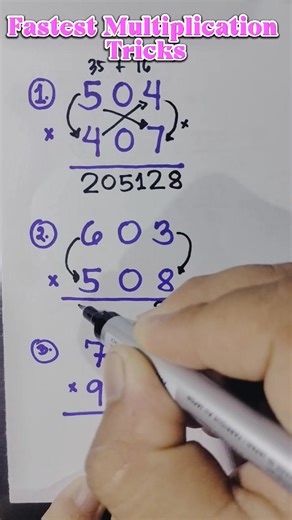 Fastest Multiplication
Tricks
35 + 16
1. 504
× 407 ×
205128
2. 603
× 508
3. 7
× 9